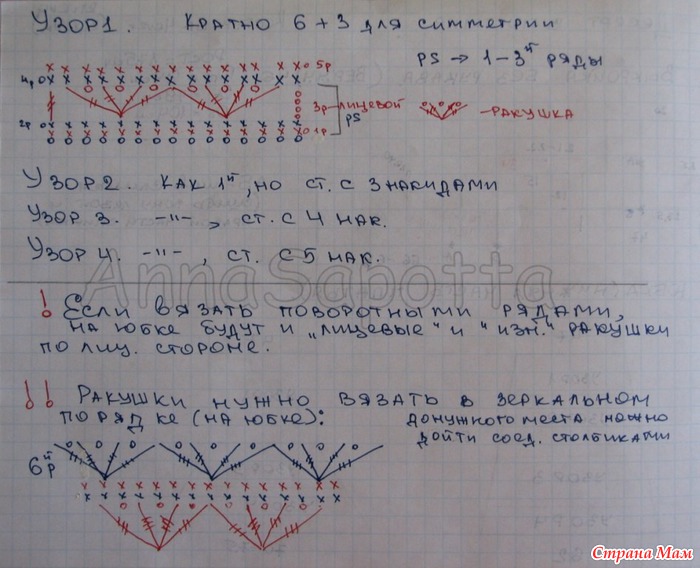 Узор 1. Кратно 6 + 3 для симметрии
PS → 1 – 3й ряды
5р
4р
3р – лицевой
PS
– ракушка
2р
1р
Узор 2. Как 1й, но ст. с 3 накидами
Узор 3. -"- , ст. с 4 нак.
Узор 4. -"- , ст. с 5 нак.
AnnaSabotta
! Если вязать поворотными рядами,
на юбке будут и „лицевые" и "изн." ракушки
по лиц. стороне.
!! Ракушки нужно вязать в зеркальном
порядке (на юбке):
до нужного места можно
дойти соед. столбиками
6й р
Страна Мам